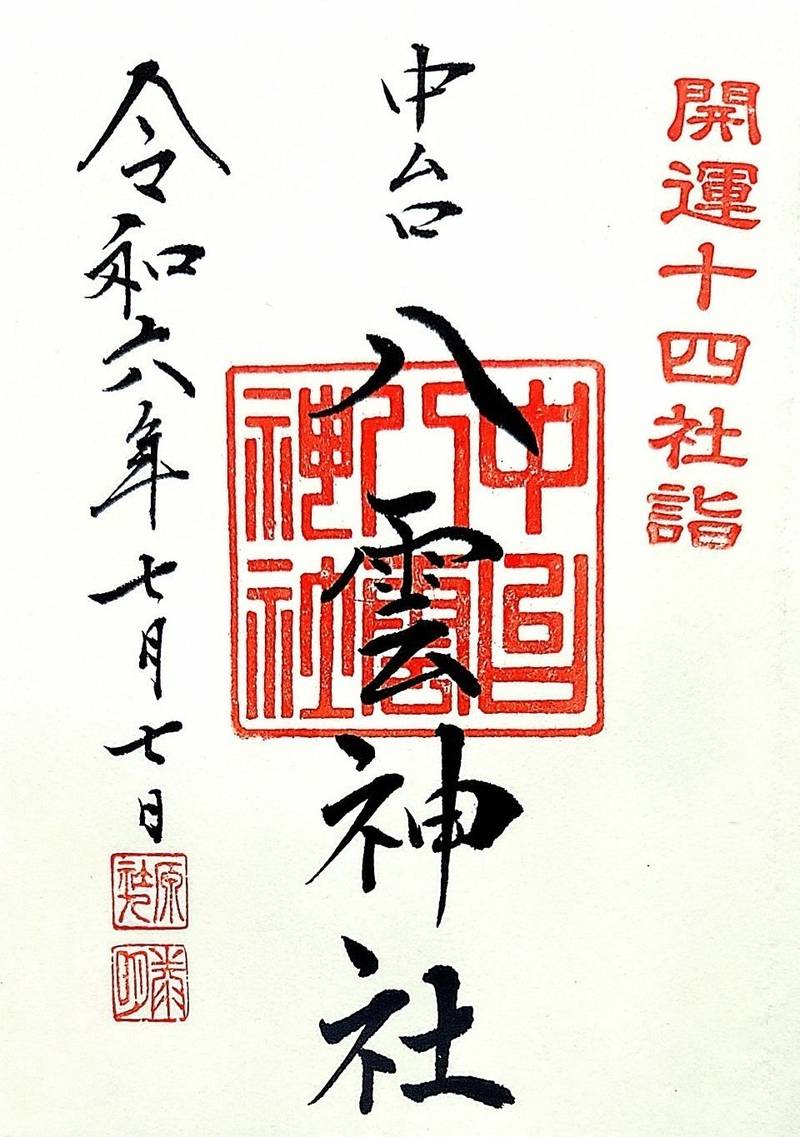 開運十四社詣
中台
八雲神社
中台
八雲
神社
令和六年七月七日